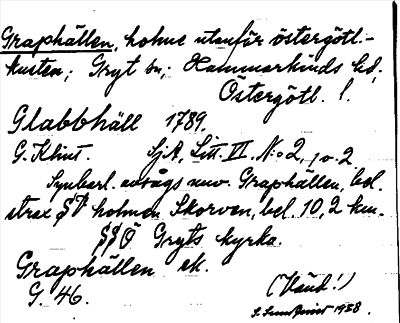 Graphällen, holme utanför östergötl.-
kusten; Gryt sn; Hammarkinds hd,
Östergötl. l.
Glabbhäll 1789.
G. Klint. SjA, Litt. VI. N:o 2, 10-2
Synbarl. avsågs nuv. Graphällen, bel.
strax SV holmen Skorven, bel. 10,2 km.
SSÖ Gryts kyrka.
Graphällen ek.
G. 46.
(Vänd!)
1938.